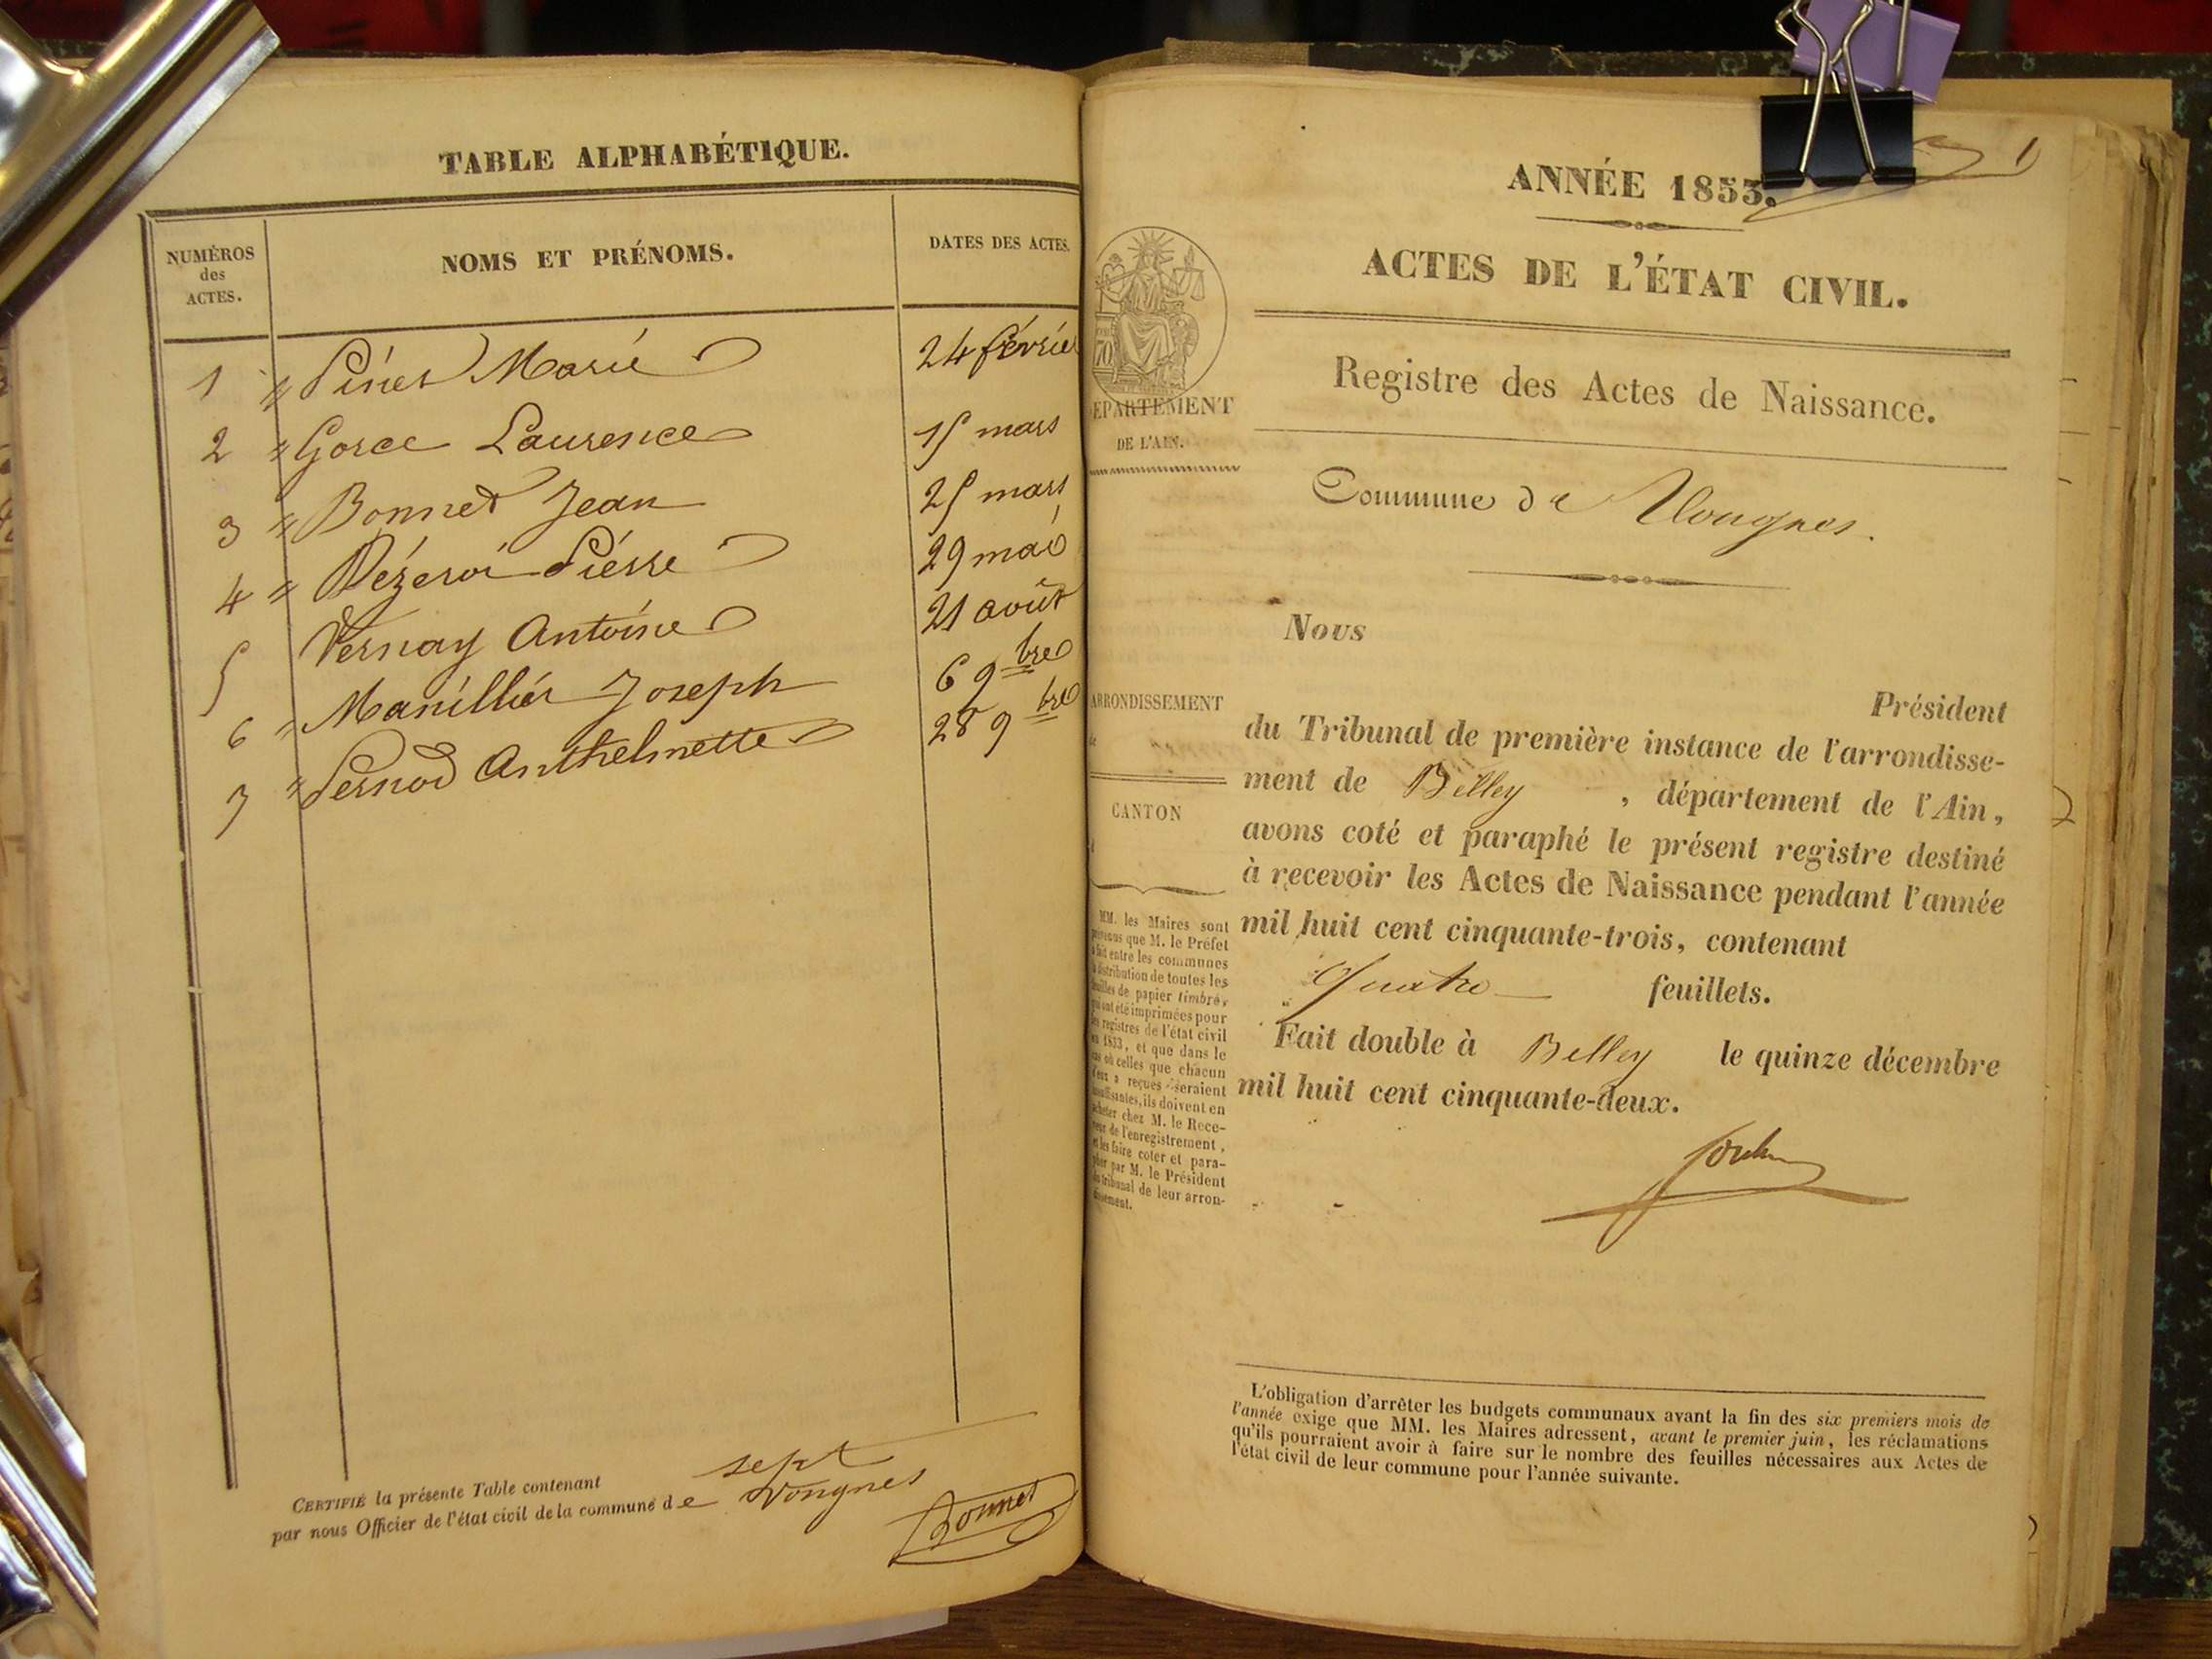 TABLE ALPHABÉTIQUE.
NUMÉROS
des
ACTES.
NOMS ET PRÉNOMS.
DATES DES ACTES.
1 " Pinet Marie 24 février
2 " Gorce Laurence 15 mars
3 " Bonnet Jean 25 mars
4 " Pierre 29 mai
5 Vernay Antoine 21 août
6 " Manillier Joseph 6 9bre
7 " Pernod Anthelmette 28 9bre
CERTIFIÉ la présente Table contenant sept
par nous Officier de l'état civil de la commune de Vongnes
Bonnet
1
ANNÉE 1853.
ACTES DE L'ÉTAT CIVIL.
Registre des Actes de Naissance.
EPARTEMENT
DE L'AIN.
Commune de Vongnes.
Nous
ARRONDISSEMENT
de
Président
du Tribunal de première instance de l'arrondisse-
ment de Belley , département de l'Ain,
avons coté et paraphé le présent registre destiné
à recevoir les Actes de Naissance pendant l'année
mil huit cent cinquante-trois, contenant
Quatre feuillets.
Fait double à Belley le quinze décembre
mil huit cent cinquante-deux.
CANTON
MM. les Maires sont
que M. le Préfet
fait entre les communes
distribution de toutes les
de papier timbré,
ont été imprimées pour
registres de l'état civil
1853, et que dans le
où celles que chacun
a reçues seraient
ils doivent en
chez M. le Rece-
de l'enregistrement,
et les faire coter et para-
par M. le Président
tribunal de leur arron-
L'obligation d'arrêter les budgets communaux avant la fin des six premiers mois de
l'année exige que MM. les Maires adressent, avant le premier juin, les réclamations
qu'ils pourraient avoir à faire sur le nombre des feuilles nécessaires aux Actes de
l'état civil de leur commune pour l'année suivante.